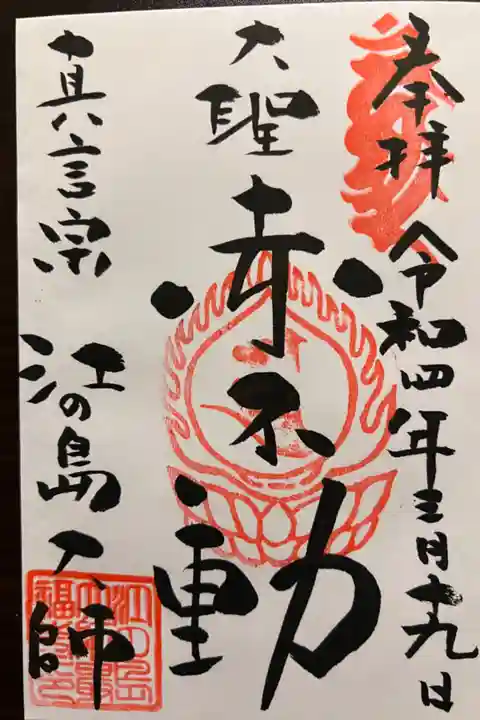 奉拝 令和四年三月十九日
大聖赤不動
真言宗 江の島大師